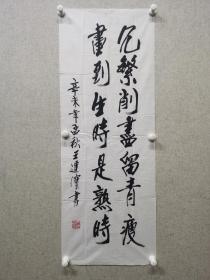 冗繁削盡留青瘦
畫到生時是熟時
辛未年孟秋王連漢書